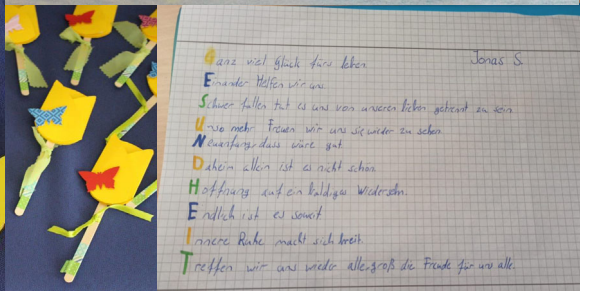 Jonas S.
Ganz viel Glück fürs leben.
Einander Helfen wir uns
Schwer fallen tut es uns von unseren lieben getrennt zu sein
Umso mehr Freuen wir uns sie wieder zu sehen
Neuanfang, dass wäre gut
Daheim allein ist es nicht schön.
Hoffnung auf ein baldiges Wiedersehn.
Endlich ist es soweit
Innere Ruhe macht sich breit.
Treffen wir uns wieder alle, groß die Freude für uns alle.